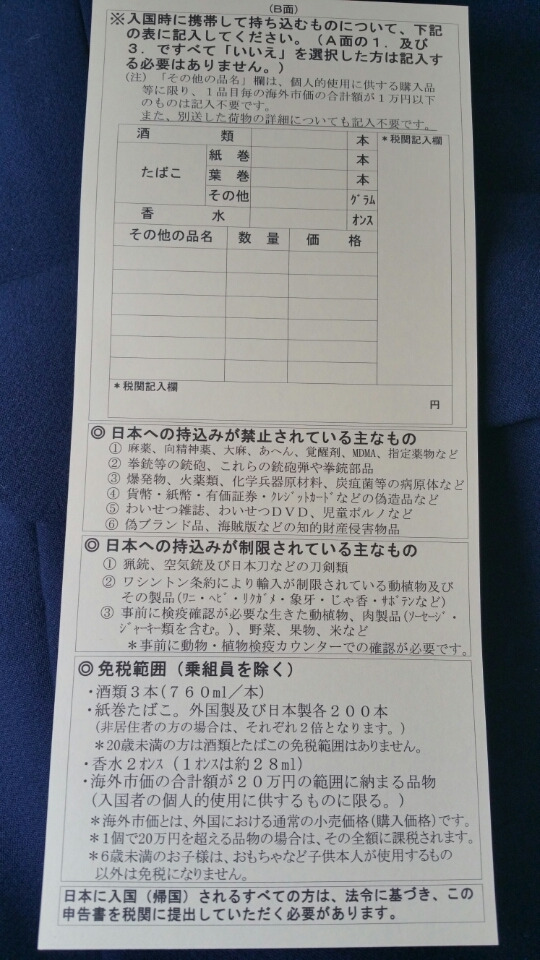 （B面）
※入国時に携帯して持ち込むものについて、下記
の表に記入してください。（A面の１．及び
３．ですべて「いいえ」を選択した方は記入す
る必要はありません。）
（注）「その他の品名」欄は、個人的使用に供する購入品
等に限り、１品目毎の海外市価の合計額が１万円以下
のものは記入不要です。
また、別送した荷物の詳細についても記入不要です。
酒 類 本 ＊税関記入欄
たばこ 紙 巻 本
葉 巻 本
その他 ｸﾞﾗﾑ
香 水 ｵﾝｽ
その他の品名 数 量 価 格
＊税関記入欄
円
◎ 日本への持込みが禁止されている主なもの
① 麻薬、向精神薬、大麻、あへん、覚醒剤、MDMA、指定薬物など
② 拳銃等の銃砲、これらの銃砲弾や拳銃部品
③ 爆発物、火薬類、化学兵器原材料、炭疽菌等の病原体など
④ 貨幣・紙幣・有価証券・ｸﾚｼﾞｯﾄｶｰﾄﾞなどの偽造品など
⑤ わいせつ雑誌、わいせつＤＶＤ、児童ポルノなど
⑥ 偽ブランド品、海賊版などの知的財産侵害物品
◎ 日本への持込みが制限されている主なもの
① 猟銃、空気銃及び日本刀などの刀剣類
② ワシントン条約により輸入が制限されている動植物及び
その製品(ﾜﾆ・ﾍﾋﾞ・ﾘｸｶﾞﾒ・象牙・じゃ香・ｻﾎﾞﾃﾝなど)
③ 事前に検疫確認が必要な生きた動植物、肉製品(ｿｰｾｰｼﾞ・
ｼﾞｬｰｷｰ類を含む。)、野菜、果物、米など
＊事前に動物・植物検疫カウンターでの確認が必要です。
◎ 免税範囲（乗組員を除く）
・酒類３本(７６０ml／本)
・紙巻たばこ。外国製及び日本製各２００本
(非居住者の方の場合は、それぞれ２倍となります。)
＊20歳未満の方は酒類とたばこの免税範囲はありません。
・香水２オンス（１ｵﾝｽは約２８ml）
・海外市価の合計額が２０万円の範囲に納まる品物
(入国者の個人的使用に供するものに限る。)
＊海外市価とは、外国における通常の小売価格(購入価格)です。
＊1個で20万円を超える品物の場合は、その全額に課税されます。
＊６歳未満のお子様は、おもちゃなど子供本人が使用するもの
以外は免税になりません。
日本に入国（帰国）されるすべての方は、法令に基づき、この
申告書を税関に提出していただく必要があります。